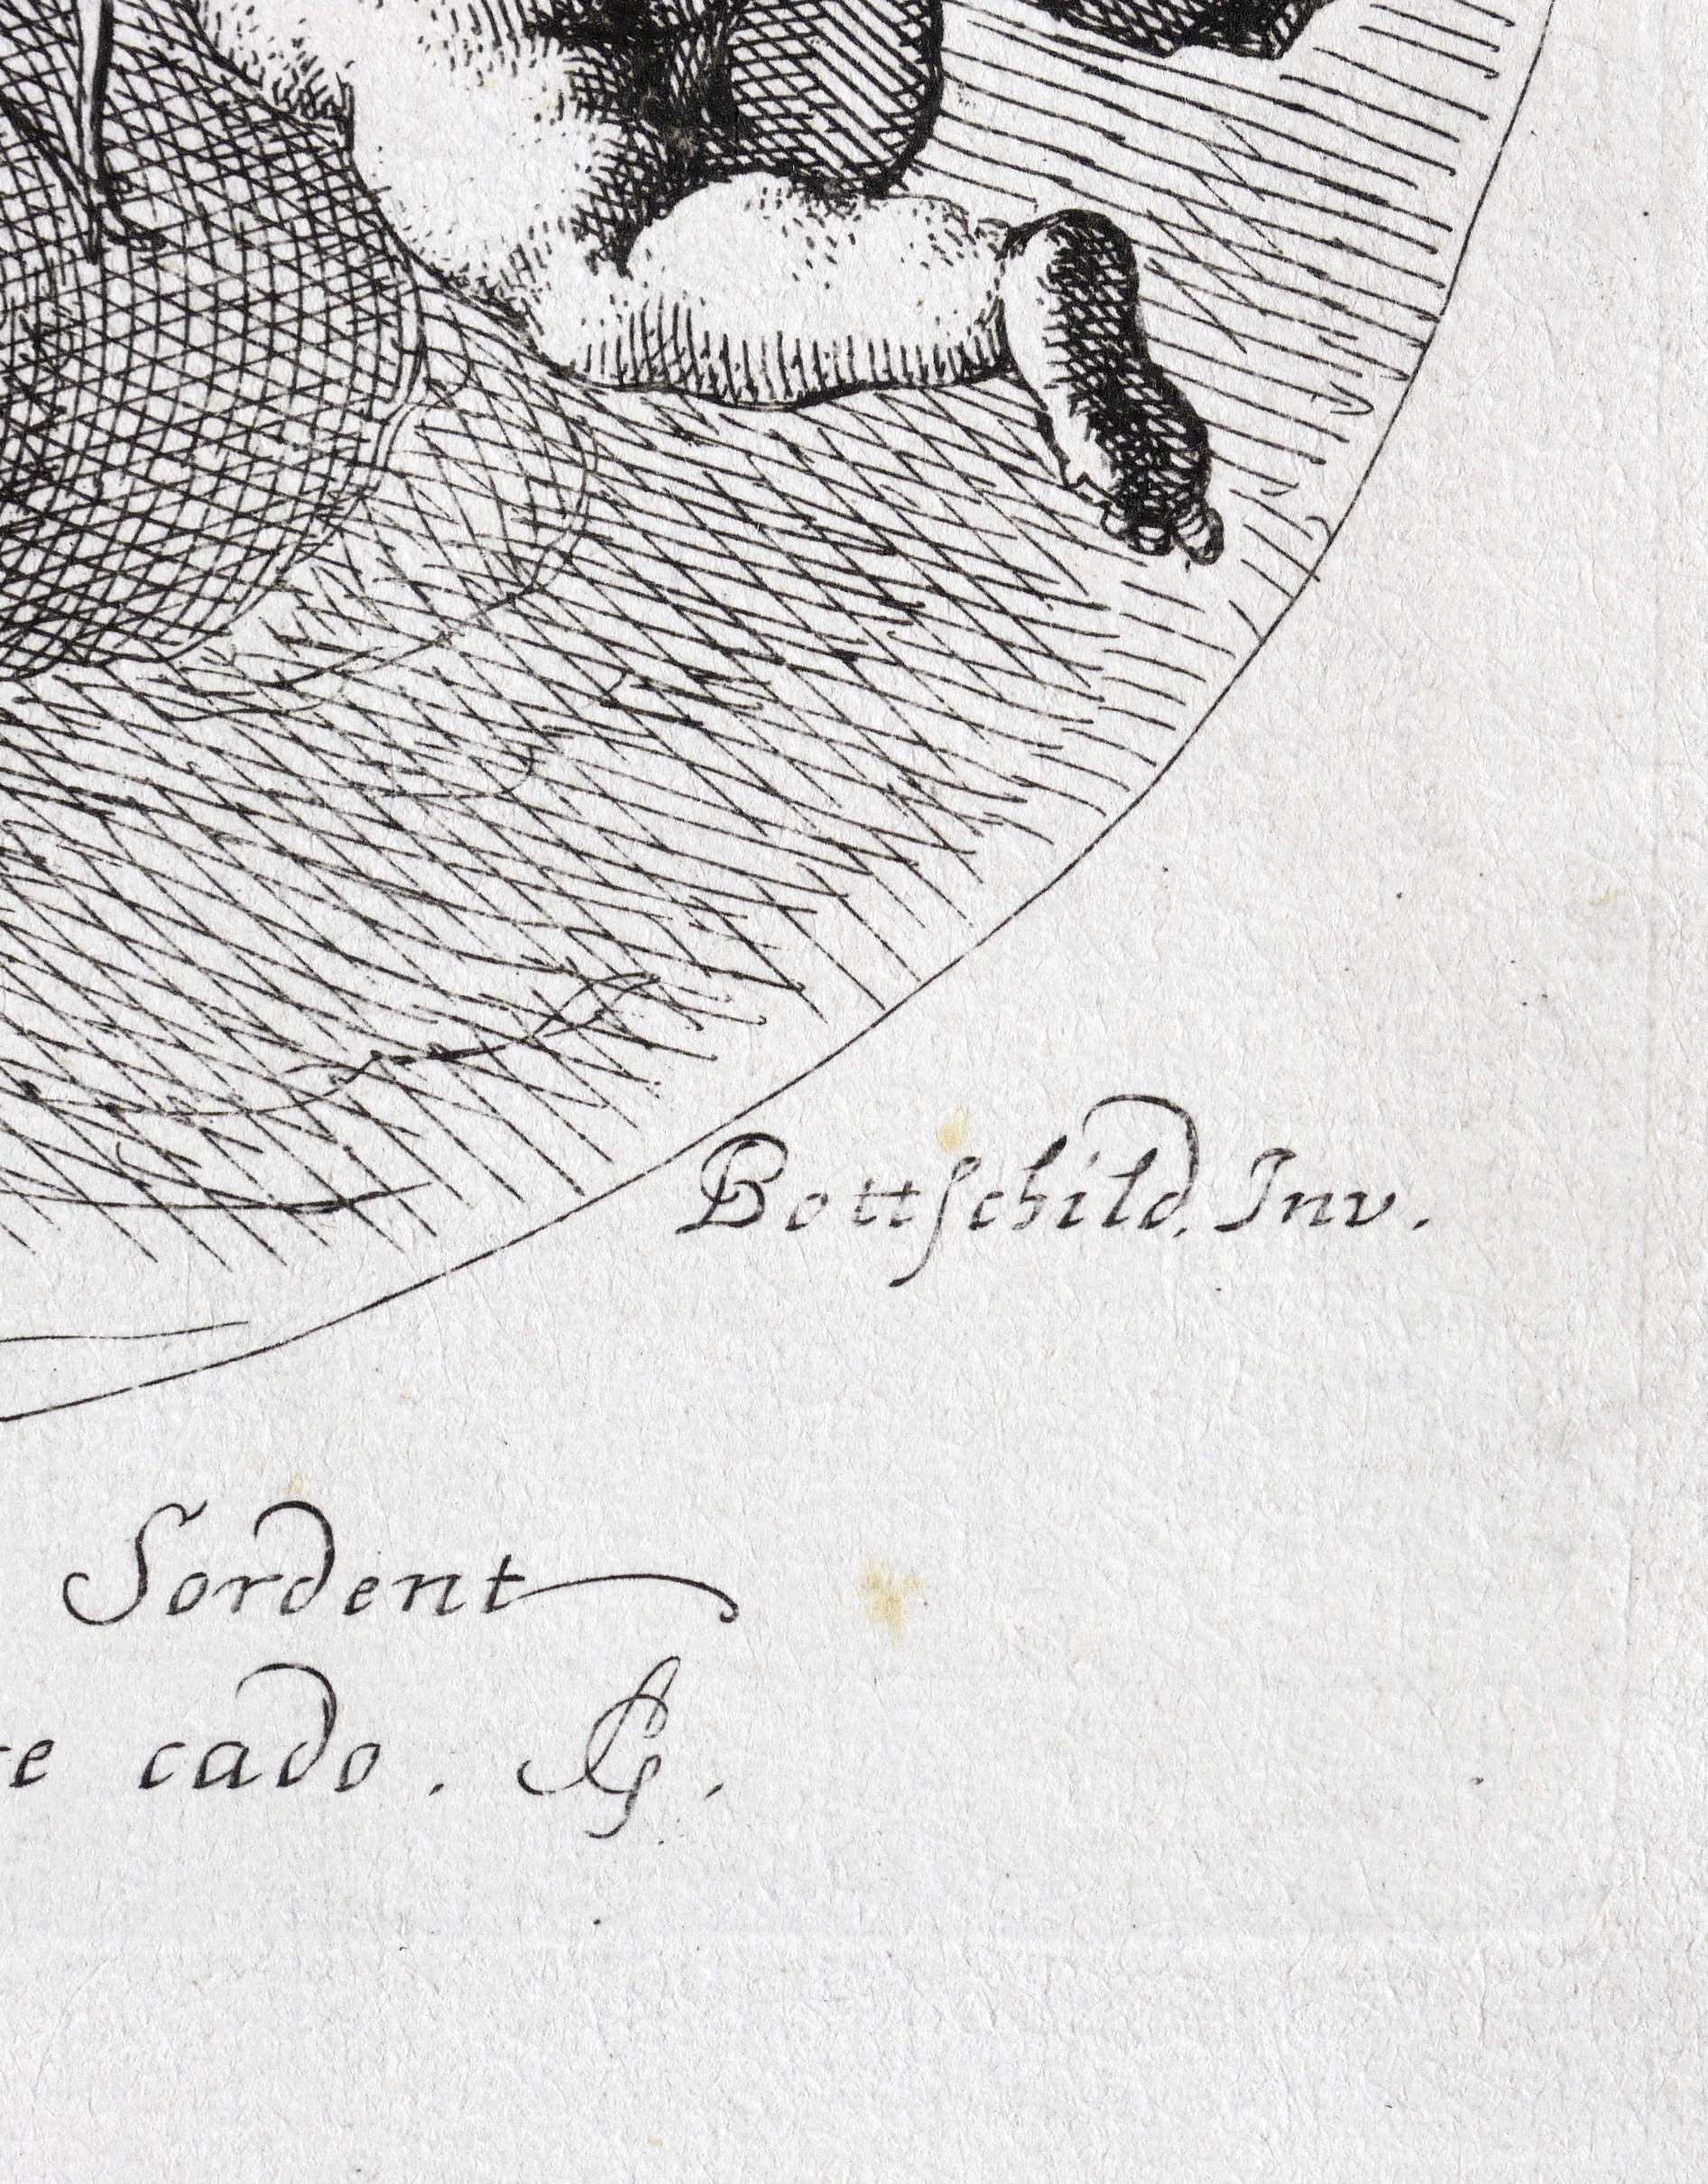 Bottſchild. Inv.
Sordent
te cado. AG.